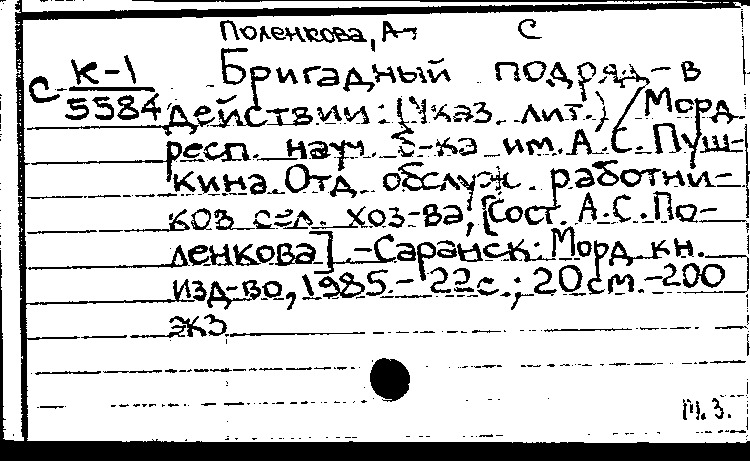 Поленкова, А. С
С К-1 Бригадный подряд - в
5584 действии: (Указ. лит.) / Морд.
респ. науч. б-ка им. А. С. Пуш-
кина. Отд. обслуж. работни-
ков сел. хоз-ва; [Сост. А. С. По-
ленкова] - Саранск: Морд. кн.
изд-во, 1985. - 22 с.; 20 см. - 200
экз.
М. З.